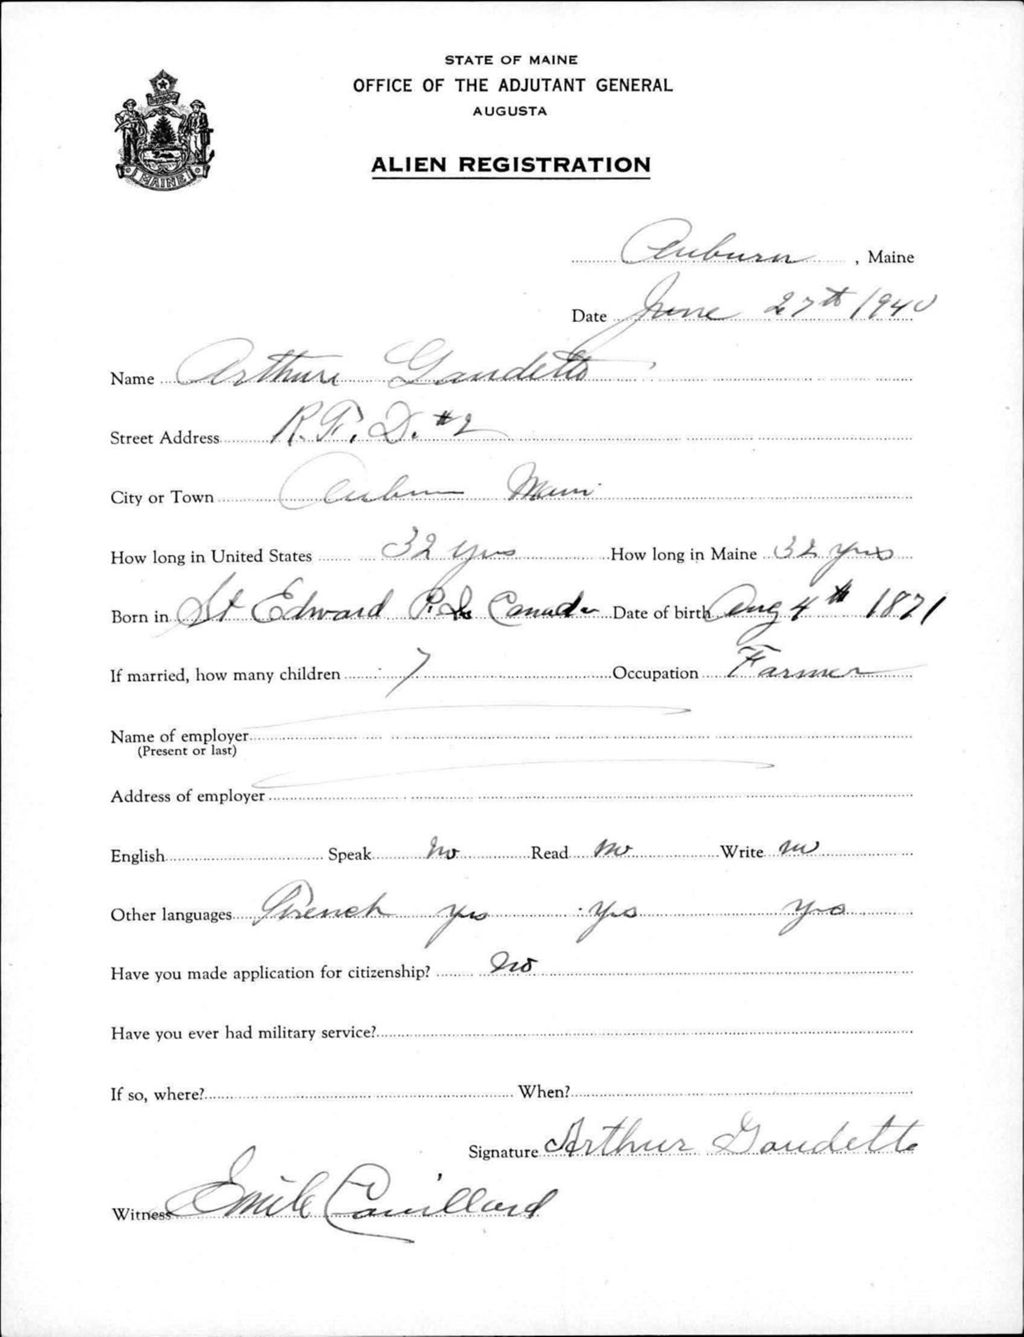 STATE OF MAINE
OFFICE OF THE ADJUTANT GENERAL
AUGUSTA
MAINE
ALIEN REGISTRATION
Auburn, Maine
Date June 27th 1940
Name Arthur Gaudette
Street Address R.F.D. #2
City or Town Auburn Maine
How long in United States 32 yrs How long in Maine 32 yrs
Born in St Edward P.Q. Canada Date of birth Aug 4th 1871
If married, how many children 7 Occupation Farmer
Name of employer
(Present or last)
Address of employer
English Speak No Read No Write no
Other languages French yes yes yes
Have you made application for citizenship? No
Have you ever had military service?
If so, where? When?
Signature Arthur Gaudette
Witness Emile Couillard